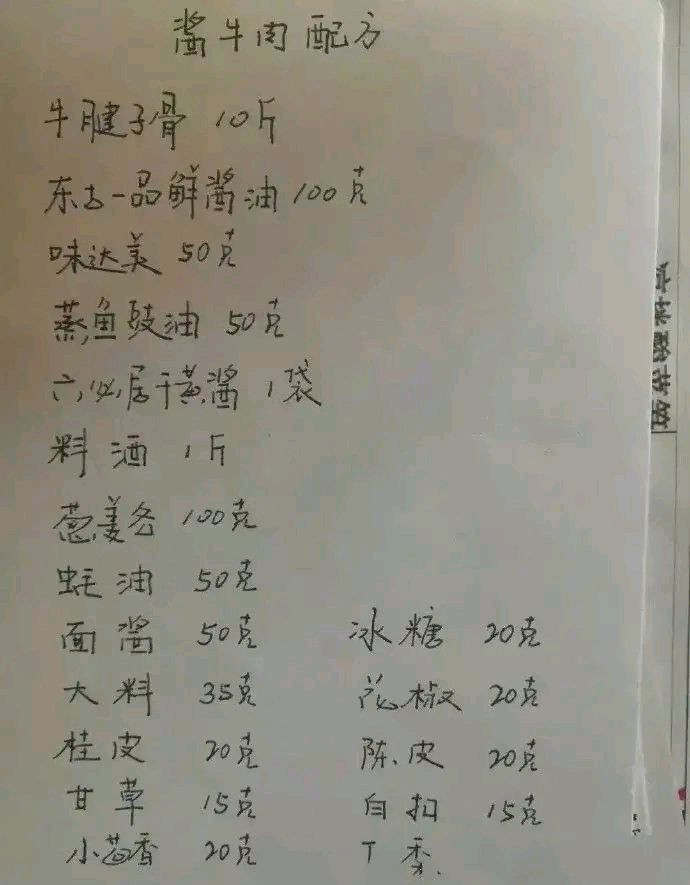 酱牛肉配方
牛腱子骨 10斤
东古一品鲜酱油 100克
味达美 50克
蒸鱼豉油 50克
六必居干黄酱 1袋
料酒 1斤
葱姜各 100克
蚝油 50克
面酱 50克 冰糖 20克
大料 35克 花椒 20克
桂皮 20克 陈皮 20克
甘草 15克 白扣 15克
小茴香 20克 丁香